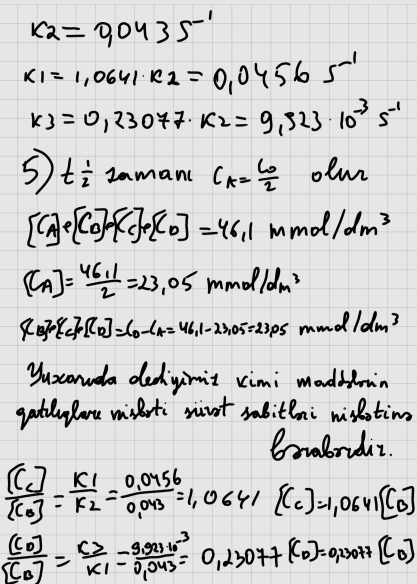 K2 = 0,043 S⁻¹
K1 = 1,0641·K2 = 0,0456 S⁻¹
K3 = 0,23077·K2 = 9,923·10⁻³ S⁻¹
5) t ½ zamanı C_A = C₀/2 olur
[C_A]+[C_B]+[C_C]+[C_D] = 46,1 mmol/dm³
[C_A] = 46,1/2 = 23,05 mmol/dm³
[C_B]+[C_C]+[C_D] = C₀-C_A = 46,1-23,05 = 23,05 mmol/dm³
Yuxarıda dediyimiz kimi maddələrin
qatılıqları nisbəti sürət sabitləri nisbətinə
bərabərdir.
[C_C]/[C_B] = K1/K2 = 0,0456/0,043 = 1,0641 [C_C] = 1,0641[C_B]
[C_D]/[C_B] = K3/K1 = 9,923·10⁻³/0,043 = 0,23077 [C_D] = 0,23077 [C_B]